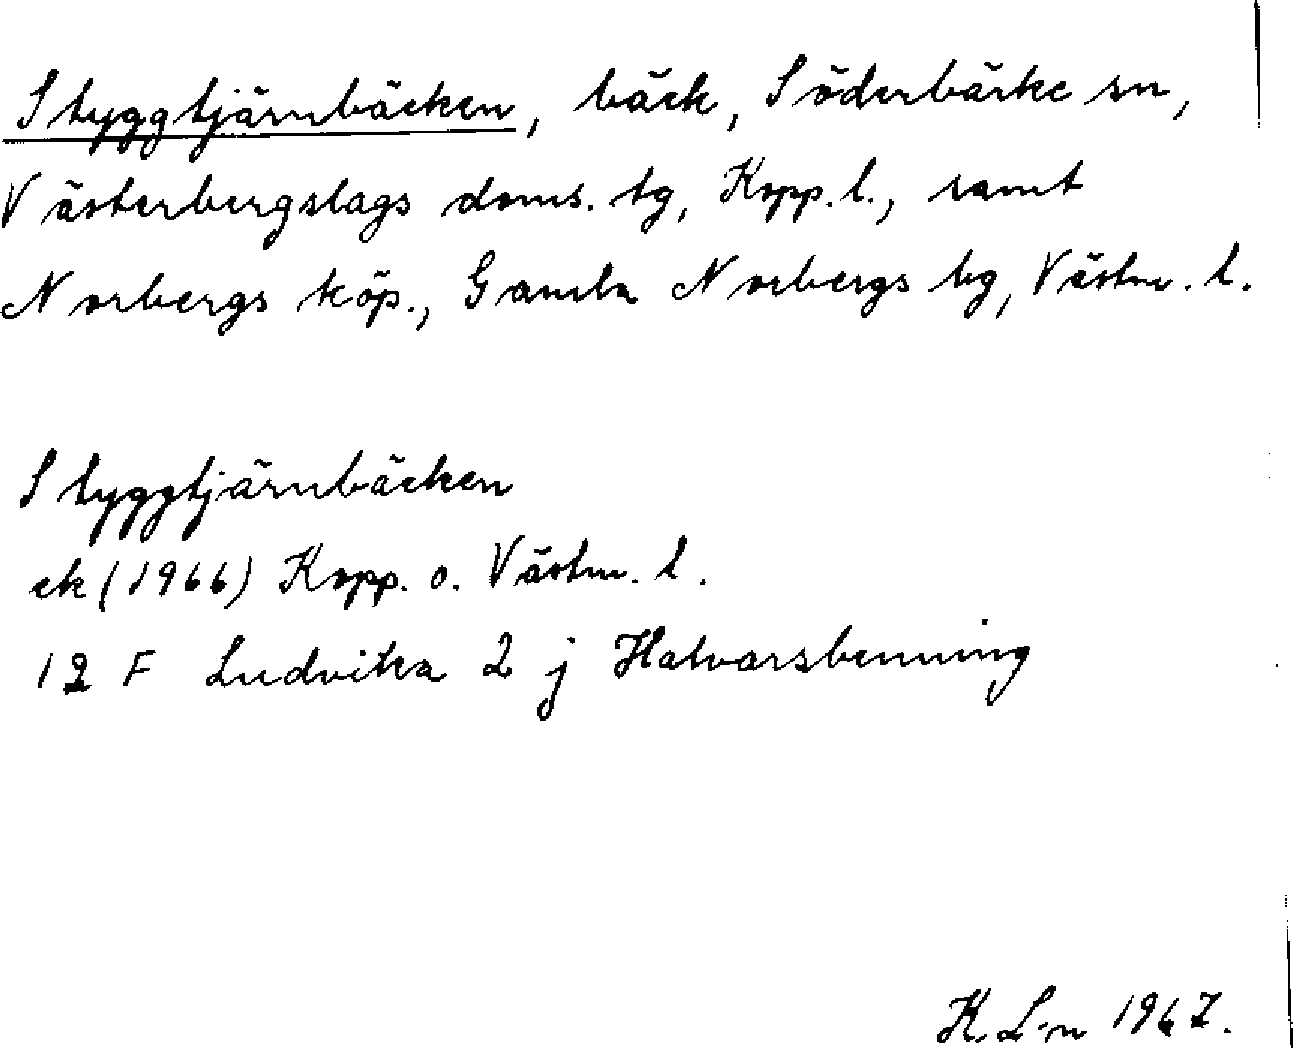 Styggtjärnbäcken, bäck, Söderbärke sn,
Västerbergslags doms. tg, Kopp. l., samt
Norbergs köp., Gamla Norbergs bg, Västm. l.
Styggtjärnbäcken
ek (1966) Kopp. o. Västm. l.
12 F Ludvika 2 j Halvarsbenning
K. L-n 1967.